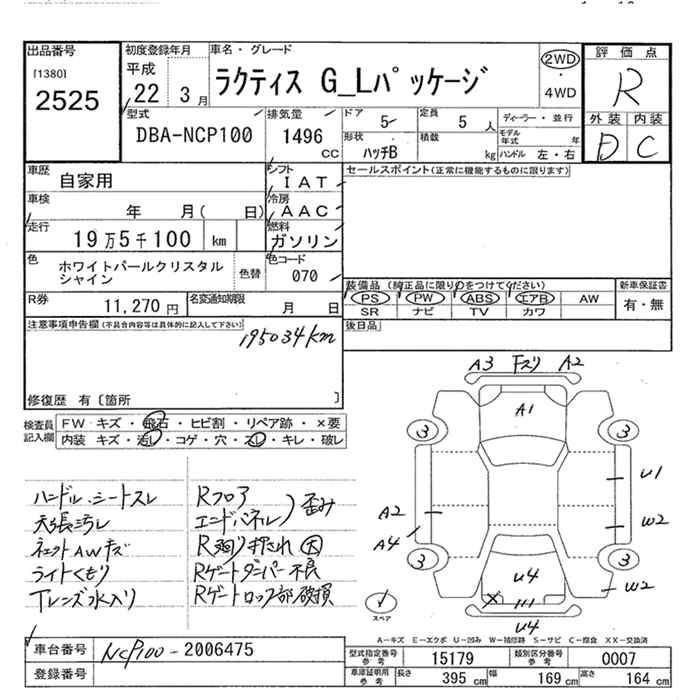 出品番号
[1380]
2525
初度登録年月
平成
22 3月
車名・グレード
ラクティス G_Lパッケージ
2WD
・
4WD
評価点
R
外装 内装
D C
型式
DBA-NCP100
排気量
1496
CC
ドア 5
定員 5 人
形状 ハッチB
積載 kg
ディーラー・並行
モデル年式 年
ハンドル 左・右
車歴 自家用
シフト IAT
車検 年 月( 日)
冷房 AAC
走行 19万5千100 km
燃料 ガソリン
色 ホワイトパールクリスタルシャイン
色替
色コード 070
R券 11,270円
名変通知期限 月 日
セールスポイント(正常に機能するものに限ります)
装備品(純正品に限り○をつけてください)
PS PW ABS エアB AW
SR ナビ TV カワ
新車保証書
有・無
後日品
注意事項申告欄(不具合内容等は具体的に記入して下さい)
195034km
修復歴 有〔箇所 〕
検査員記入欄
FW キズ・飛石・ヒビ割・リペア跡・×要
内装 キズ・汚レ・コゲ・穴・スレ・キレ・破レ
ハンドル、シートスレ
天張汚レ
ネェットAWキズ
ライトくもり
Tレンズ水入り
Rフロア
エンドパネル
歪み
R廻り折だれ 大
Rゲートダンパー不良
Rゲートロック部破損
A3 Fズリ A2
A1
3 3
A2
A4
U1
W2
3 3
U4
W2
U4
スペア
A-キズ E-エクボ U-凹み W-補修跡 S-サビ C-腐食 XX-交換済
車台番号 NCP100-2006475
登録番号
型式指定番号 参考 15179
類別区分番号 参考 0007
車庫証明用 参考 長さ 395 cm 幅 169 cm 高さ 164 cm